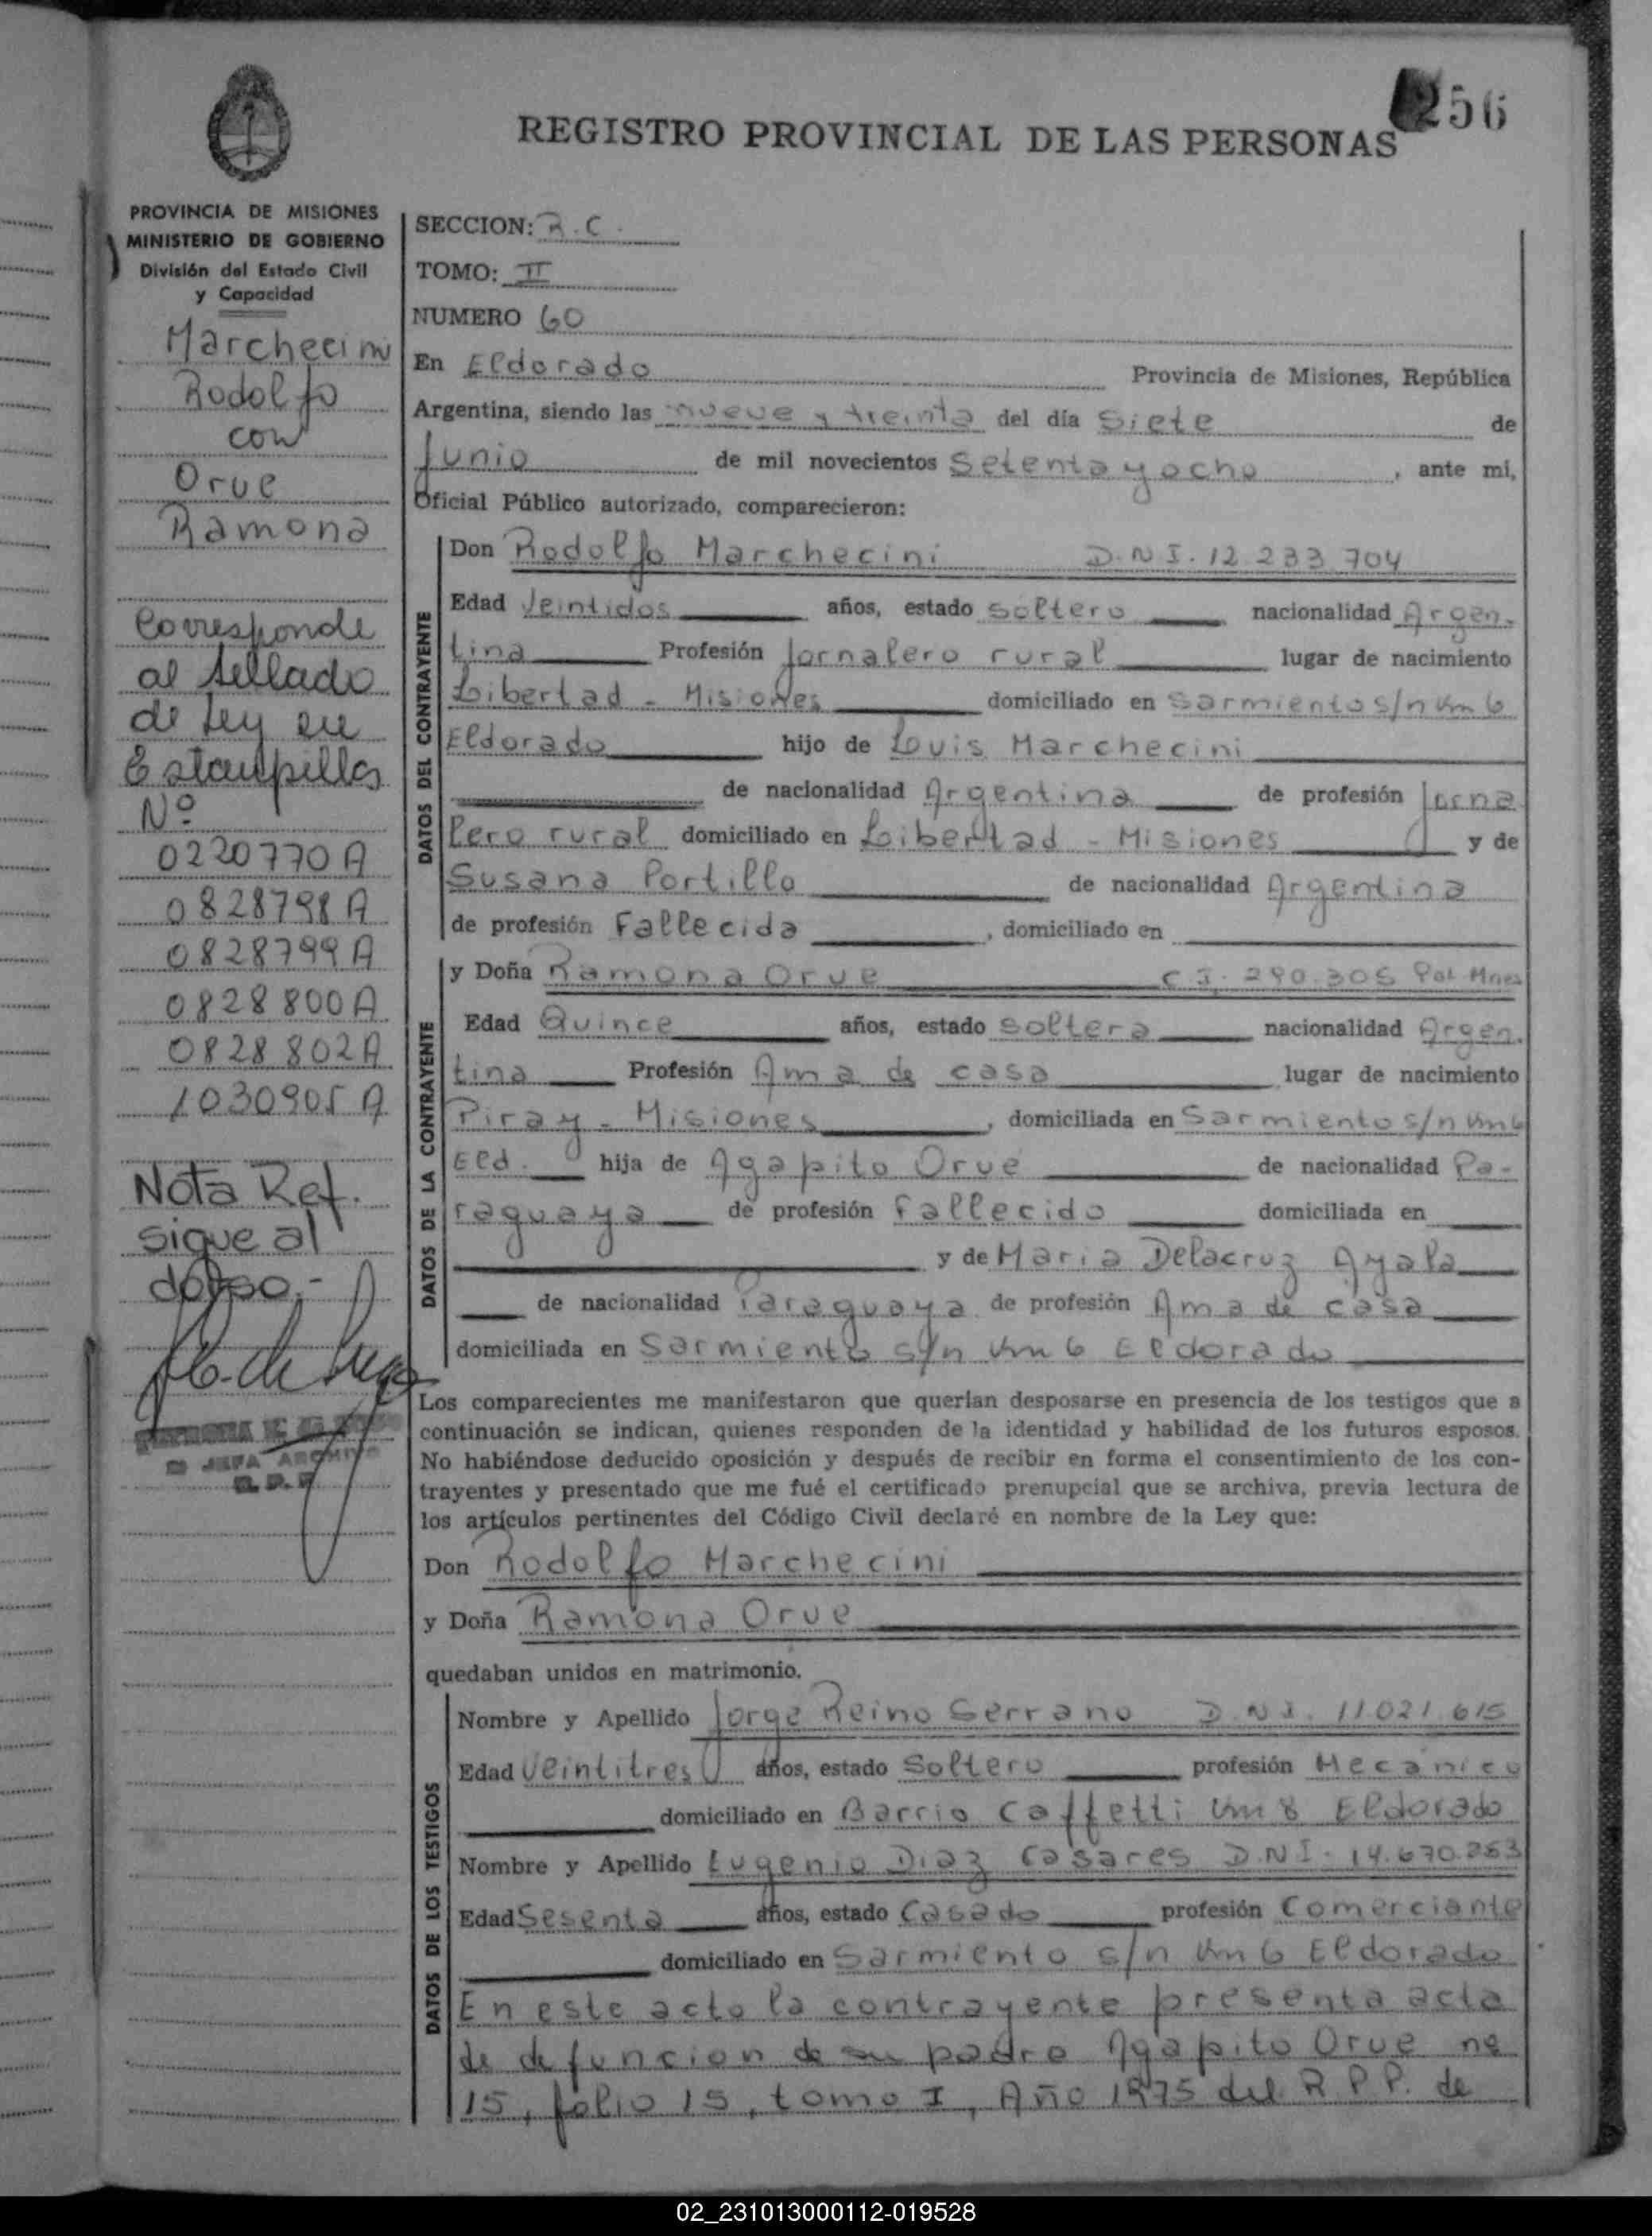 256
REGISTRO PROVINCIAL DE LAS PERSONAS
PROVINCIA DE MISIONES
MINISTERIO DE GOBIERNO
División del Estado Civil
y Capacidad
Marchecini
Rodolfo
con
Orue
Ramona
Corresponde
al sellado
de Ley en
Estampillas
Nº
0220770A
0828798A
0828799A
0828800A
0828802A
1030905A
Nota Ref.
sigue al
dorso.-
JEFA ARCHIVO
R.P.P.
SECCION: R.C.
TOMO: II
NUMERO 60
En Eldorado Provincia de Misiones, República
Argentina, siendo las nueve y treinta del día Siete de
Junio de mil novecientos Setenta y ocho, ante mí,
Oficial Público autorizado, comparecieron:
DATOS DEL CONTRAYENTE
Don Rodolfo Marchecini D.N.I. 12.233.704
Edad Veintidos años, estado soltero nacionalidad Argen.
tina Profesión Jornalero rural lugar de nacimiento
Libertad - Misiones domiciliado en Sarmiento s/n Km 6
Eldorado hijo de Louis Marchecini
de nacionalidad Argentina de profesión Jorna
lero rural domiciliado en Libertad - Misiones y de
Susana Portillo de nacionalidad Argentina
de profesión Fallecida, domiciliado en
DATOS DE LA CONTRAYENTE
y Doña Ramona Orue C.I. 290.305 Pol. Mnes
Edad Quince años, estado soltera nacionalidad Argen.
tina Profesión Ama de casa lugar de nacimiento
Piray - Misiones, domiciliada en Sarmiento s/n Km 6
Eld. hija de Agapito Orue de nacionalidad Pa-
raguaya de profesión Fallecido domiciliada en
y de Maria Delacruz Ayala
de nacionalidad Paraguaya de profesión Ama de casa
domiciliada en Sarmiento s/n Km 6 Eldorado
Los comparecientes me manifestaron que querían desposarse en presencia de los testigos que a
continuación se indican, quienes responden de la identidad y habilidad de los futuros esposos.
No habiéndose deducido oposición y después de recibir en forma el consentimiento de los con-
trayentes y presentado que me fué el certificado prenupcial que se archiva, previa lectura de
los artículos pertinentes del Código Civil declaré en nombre de la Ley que:
Don Rodolfo Marchecini
y Doña Ramona Orue
quedaban unidos en matrimonio.
DATOS DE LOS TESTIGOS
Nombre y Apellido Jorge Reino Serrano D.N.I. 11.021.615
Edad Veintitres años, estado Soltero profesión Mecanico
domiciliado en Barrio Caffetti Km 8 Eldorado
Nombre y Apellido Eugenio Diaz Casares D.N.I. 14.670.253
Edad Sesenta años, estado Casado profesión Comerciante
domiciliado en Sarmiento s/n Km 6 Eldorado
En este acto la contrayente presenta acta
de defuncion de su padre Agapito Orue nº
15, folio 15, tomo I, Año 1975 del R.P.P. de
02_231013000112-019528